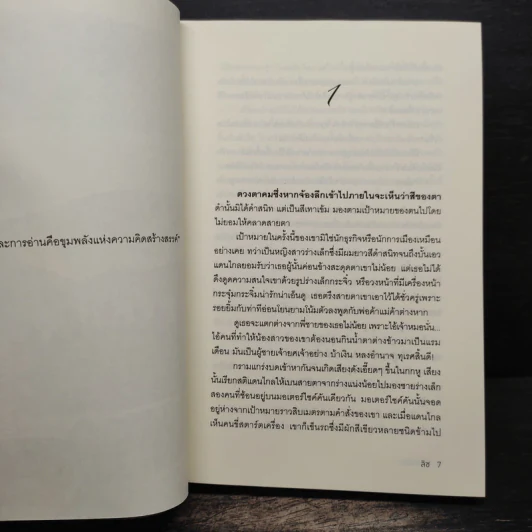 ละการอ่านคือขุมพลังแห่งความคิดสร้างสรรค์"
1
ดวงตาคมซึ่งหากจ้องลึกเข้าไปภายในจะเห็นว่าสีของตา
ดำนั้นมิได้ดำสนิท แต่เป็นสีเทาเข้ม มองตามเป้าหมายของตนไปโดย
ไม่ยอมให้คลาดสายตา
เป้าหมายในครั้งนี้ของเขามิใช่นักธุรกิจหรือนักการเมืองเหมือน
อย่างเคย ทว่าเป็นหญิงสาวร่างเล็กซึ่งมีผมยาวสีดำสนิทจนถึงบั้นเอว
แดนไกลยอมรับว่าเธอผู้นั้นค่อนข้างสะดุดตาเขาไม่น้อย แต่เธอไม่ได้
ดึงดูดความสนใจเขาด้วยรูปร่างเล็กกระจิ๋ว หรือวงหน้าที่มีเครื่องหน้า
กระจุ๋มกระจิ๋มน่ารักน่าเอ็นดู เธอตรึงสายตาเขาเอาไว้ได้ชั่วครู่เพราะ
รอยยิ้มกับท่าทีอ่อนโยนยามโน้มตัวลงพูดกับพ่อค้าแม่ค้าต่างหาก
ดูเธอจะแตกต่างจากพี่ชายของเธอไม่น้อย เพราะไอ้เจ้าหมอนั่น...
ไอ้คนที่ทำให้น้องสาวของเขาต้องนอนกินน้ำตาต่างข้าวมาเป็นแรม
เดือน มันเป็นผู้ชายเจ้ายศเจ้าอย่าง บ้าเงิน หลงอำนาจ ทุเรศสิ้นดี!
กรามแกร่งบดเข้าหากันจนเกิดเสียงดังเอี๊ยดๆ ขึ้นในกกหู เสียง
นั้นเรียกสติแดนไกลให้เบนสายตาจากร่างแน่งน้อยไปมองชายร่างเล็ก
สองคนที่ซ้อนอยู่บนมอเตอร์ไซค์คันเดียวกัน มอเตอร์ไซค์คันนั้นจอด
อยู่ห่างจากเป้าหมายราวสิบเมตรตามคำสั่งของเขา และเมื่อแดนไกล
เห็นคนขี่สตาร์ตเครื่อง เขาก็เข็นรถซึ่งมีผักสีเขียวหลายชนิดข้ามไป
ลิซ 7